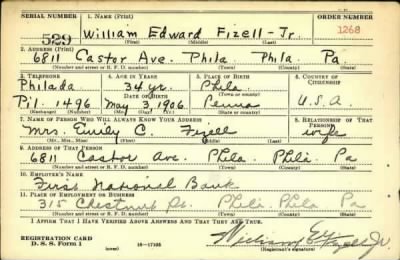 SERIAL NUMBER 1. NAME (Print) ORDER NUMBER
529 William Edward Fizell - Jr. 1268
(First) (Middle) (Last)
2. ADDRESS (Print)
6811 Castor Ave. Phila Phila. Pa
(Number and street or R. F. D. number) (Town) (County) (State)
3. TELEPHONE 4. AGE IN YEARS 5. PLACE OF BIRTH 6. COUNTRY OF CITIZENSHIP
Philada 34 yr. Phila.
(Town or county)
DATE OF BIRTH
Pil. 1496 May 3, 1906 Penna U.S.A.
(Exchange) (Number) (Mo.) (Day) (Yr.) (State or country)
7. NAME OF PERSON WHO WILL ALWAYS KNOW YOUR ADDRESS 8. RELATIONSHIP OF THAT PERSON
Mrs. Emily C. Fizell wife
(Mr., Mrs., Miss) (First) (Middle) (Last)
9. ADDRESS OF THAT PERSON
6811 Castor Ave. Phila. Phila. Pa
(Number and street or R. F. D. number) (Town) (County) (State)
10. EMPLOYER'S NAME
First National Bank
11. PLACE OF EMPLOYMENT OR BUSINESS
315 Chestnut St. Phila. Phila Pa
(Number and street or R. F. D. number) (Town) (County) (State)
I AFFIRM THAT I HAVE VERIFIED ABOVE ANSWERS AND THAT THEY ARE TRUE.
REGISTRATION CARD
D. S. S. Form 1 16-17105 William E. Fizell Jr.
(Registrant's signature)